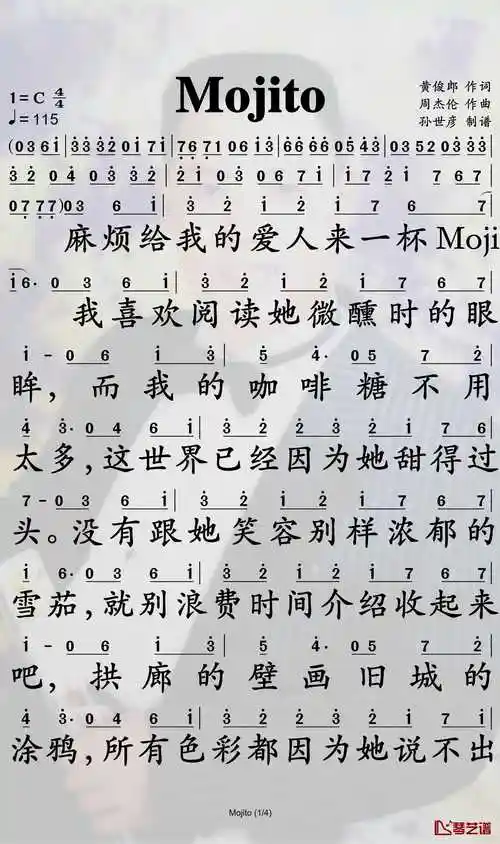 Mojito
1=C 4/4
♩=115
黄俊郎 作词
周杰伦 作曲
孙世彦 制谱
(0 3 6 i | 3 3 3 2 0 i 7 i | 7 6 7 1 0 6 i 3 | 6 6 6 6 0 5 4 3 | 0 3 5 2 0 3 3 3
3 2 0 4 3 3 2 | 2 i 0 3 0 7 6 | 7 i 2 i 7 6 7 |
0 7 7 7) 0 3 6 i | 3 2 i 2 i 7 6 7
麻烦给我的爱人来一杯Moji
i 6· 0 3 6 i | 3 2 i 2 i 7 6 7
我喜欢阅读她微醺时的眼
i - 0 6 6 i 3 | 5 4· 0 5 7 2
眸，而我的咖啡糖不用
4 3· 0 4 6 i | 3 2 3 2 i 7 6 7
太多，这世界已经因为她甜得过
7 - 0 3 6 i | 3 2 i 2 i 7 6 7
头。没有跟她笑容别样浓郁的
i 6· 0 3 6 i | 3 2 i 2 i 7 6 7
雪茄，就别浪费时间介绍收起来
i - 0 6 6 i 3 | 5 4· 0 5 7 2
吧，拱廊的壁画旧城的
4 3· 0 4 6 i | 3 2 3 2 i 7 6 7
涂鸦，所有色彩都因为她说不出
Mojito (1/4)
琴艺谱